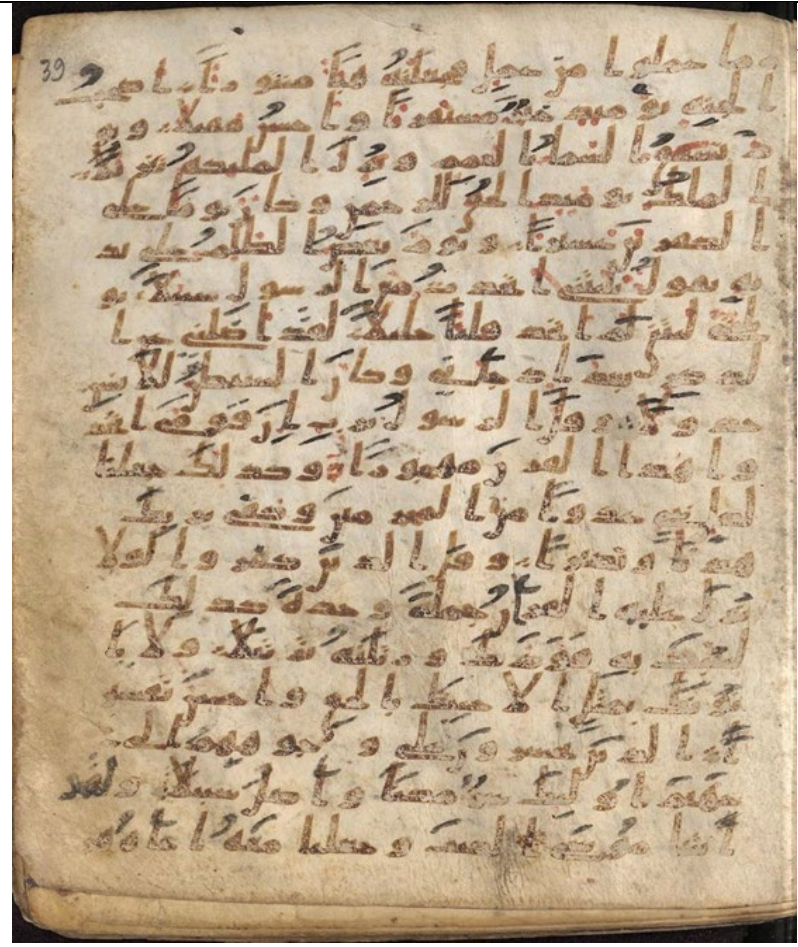 ما عملوا من عمل فجعلنه هبا منثورا اصحب
الجنه يومئذ خير مستقرا واحسن مقيلا ويو
م تشقق السما بالغمم ونزل الملئكه تنزيلا
الملك يومئذ الحق للرحمن وكان يوما على
الكفرين عسيرا ويوم يعض الظلم على يد
يه يقول يليتني اتخذت مع الرسول سبيلا يو
يلتى ليتني لم اتخذ فلنا خليلا لقد اضلني عن ا
لذكر بعد اذ جاني وكان الشيطن للانسن
خذولا وقال الرسول يرب ان قومي اتخذ
وا هذا القرن مهجورا وكذلك جعلنا
لكل نبي عدوا من المجرمين وكفى بربك
هديا ونصيرا وقال الذين كفروا لولا
نزل عليه القرن جملة وحدة كذلك
لنثبت به فوادك ورتلنه ترتيلا ولا يا
تونك بمثل الا جئنك بالحق واحسن تفسير
ا الذين يحشرون على وجوههم الى
جهنم اولئك شر مكنا واضل سبيلا ولقد
اتينا موسى الكتب وجعلنا معه اخاه هر
39